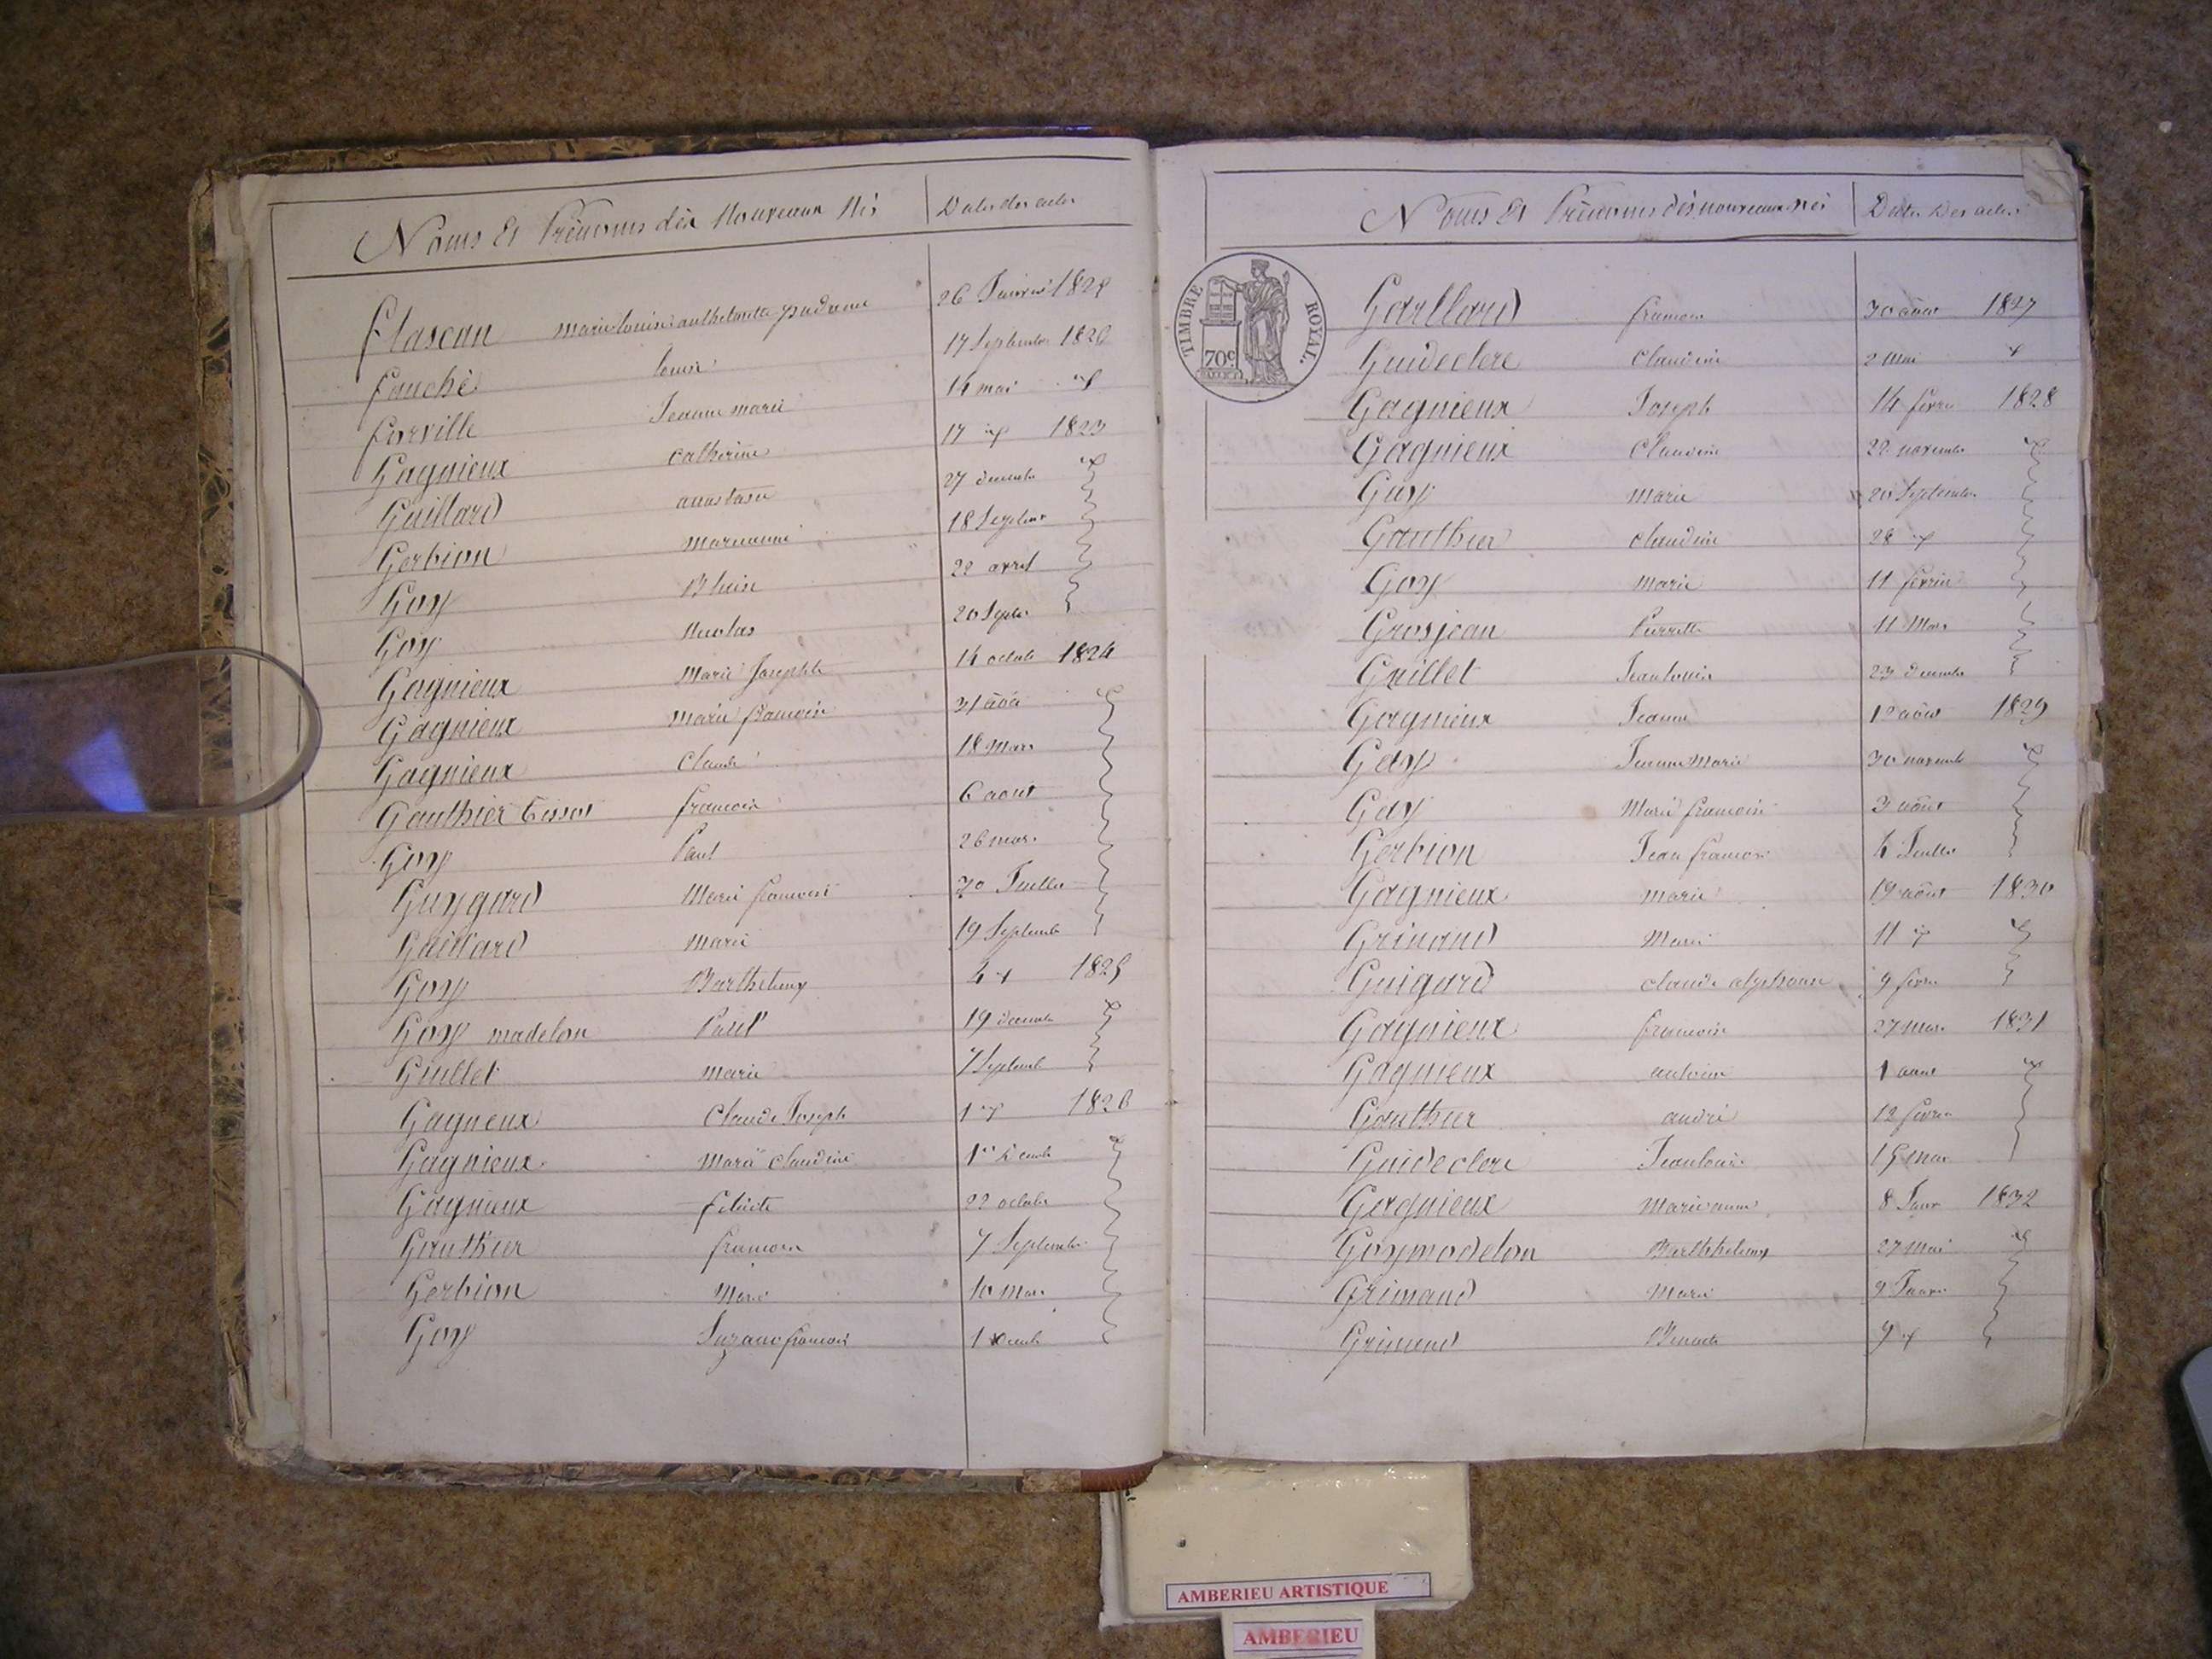 Noms Et Prénoms dès Nouveaux Nés Dates des actes
flascan marie louise
fouché louise 17 Septembre 1826
forville Jeanne marie 14 mai
Gagnieux catherine 17 1823
Gaillard anastasie 27 decembre
Gerbion marianne 18 Septembre
Goy Blaise 22 avril
Goy Nicolas 20 Septe
Gagnieux Marie Josephte 14 octob 1824
Gagnieux marie francoise 31
Gagnieux Claude 18 Mars
Gauthier Tissot francois 6 aout
Goy Paul 26 mars
Guygard Marie francoise 30 Juillet
Gaillard Marie 19 Septemb
Goy Barthelemy 4 1825
Goy madelon Paul 19 decemb
Guillet marie 7 Septemb
Gagneux Claude Joseph 1826
Gagnieux Marie claudine 1er
Gagnieux felicite 22 octobre
Gauthier francois 7 Septembre
Gerbion Marie 10 Mars
Goy Suzane francoise 1
Noms Et Prénoms dès nouveaux nés Dates Des actes
TIMBRE ROYAL.
70c
Gaillard francois 30 aout 1827
Guideclere Claudine 2 mai
Gagnieux Joseph 14 fevri 1828
Gagnieux Claudine 22 novembre
Guy Marie 20 Septembre
Gauthier claudine 28
Goy Marie 11 fevrier
Grosjean Pierrette 11 Mars
Guillet Jean louis 23 decembre
Gagnieux Jeanne aout 1829
Gay Jeanne Marie 30 novemb
Gay Marie francoise 3 aout
Gerbion Jean francois 4 Juillet
Gagnieux marie 19 aout 1830
Grimand Marie 11
Guigard claude alphonse 9 fevri
Gagnieux francoise 27 Mars 1831
Gagnieux antoine 1 aout
Gauthier andré 12 fevrie
Guideclere Jean louis 15 mai
Gagnieux Marie anne 8 Janv 1832
Goymadelon Barthhelemy 27 mai
Grimand Marie 9 Janvi
Grimand Benoite 9
AMBERIEU ARTISTIQUE
AMBERIEU